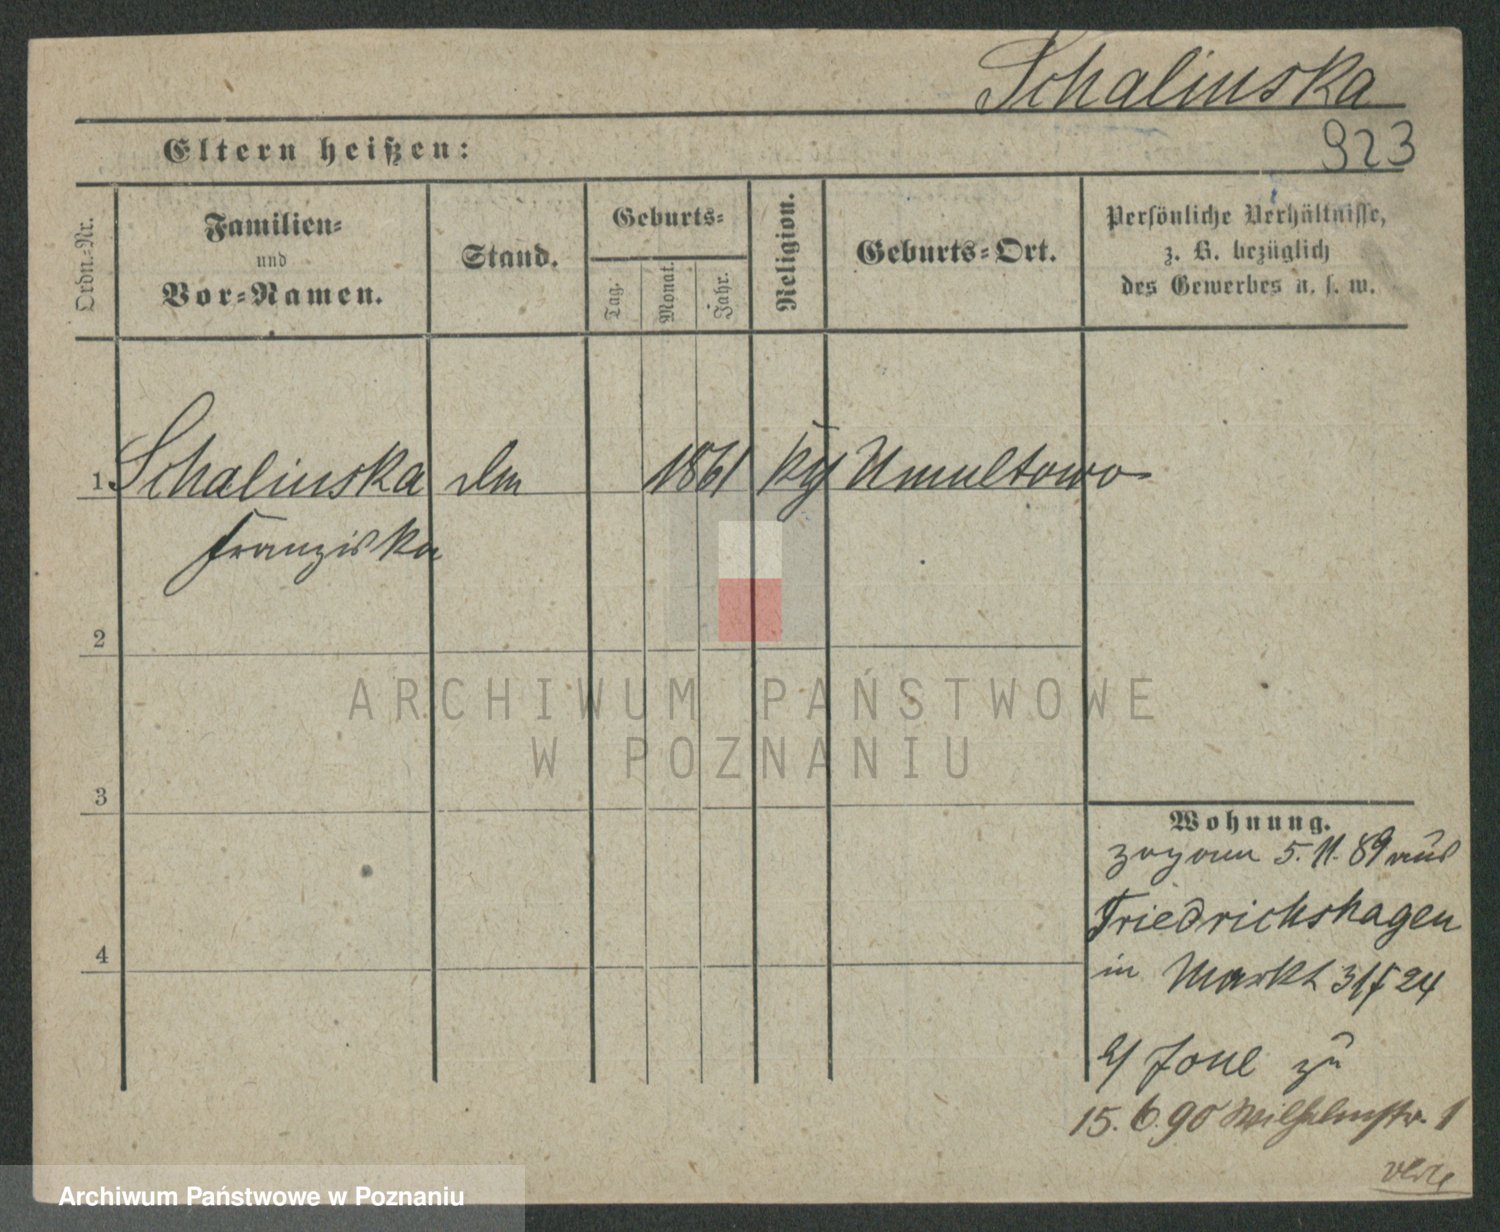 Schalinska
Eltern heißen:
923
Ordn.-Nr.
Familien-
und
Vor-Namen.
Stand.
Geburts-
Tag.
Monat.
Jahr.
Religion.
Geburts-Ort.
Persönliche Verhältnisse,
z. B. bezüglich
des Gewerbes u. s. w.
1 Schalinska 1861 Umultowo
Franziska
2
3
4
Wohnung.
zog am 5.11.89 aus
Friedrichshagen
in Markt 24
zu
15.6.90 Wilhelmstr. 1
ARCHIWUM PAŃSTWOWE
W POZNANIU
Archiwum Państwowe w Poznaniu